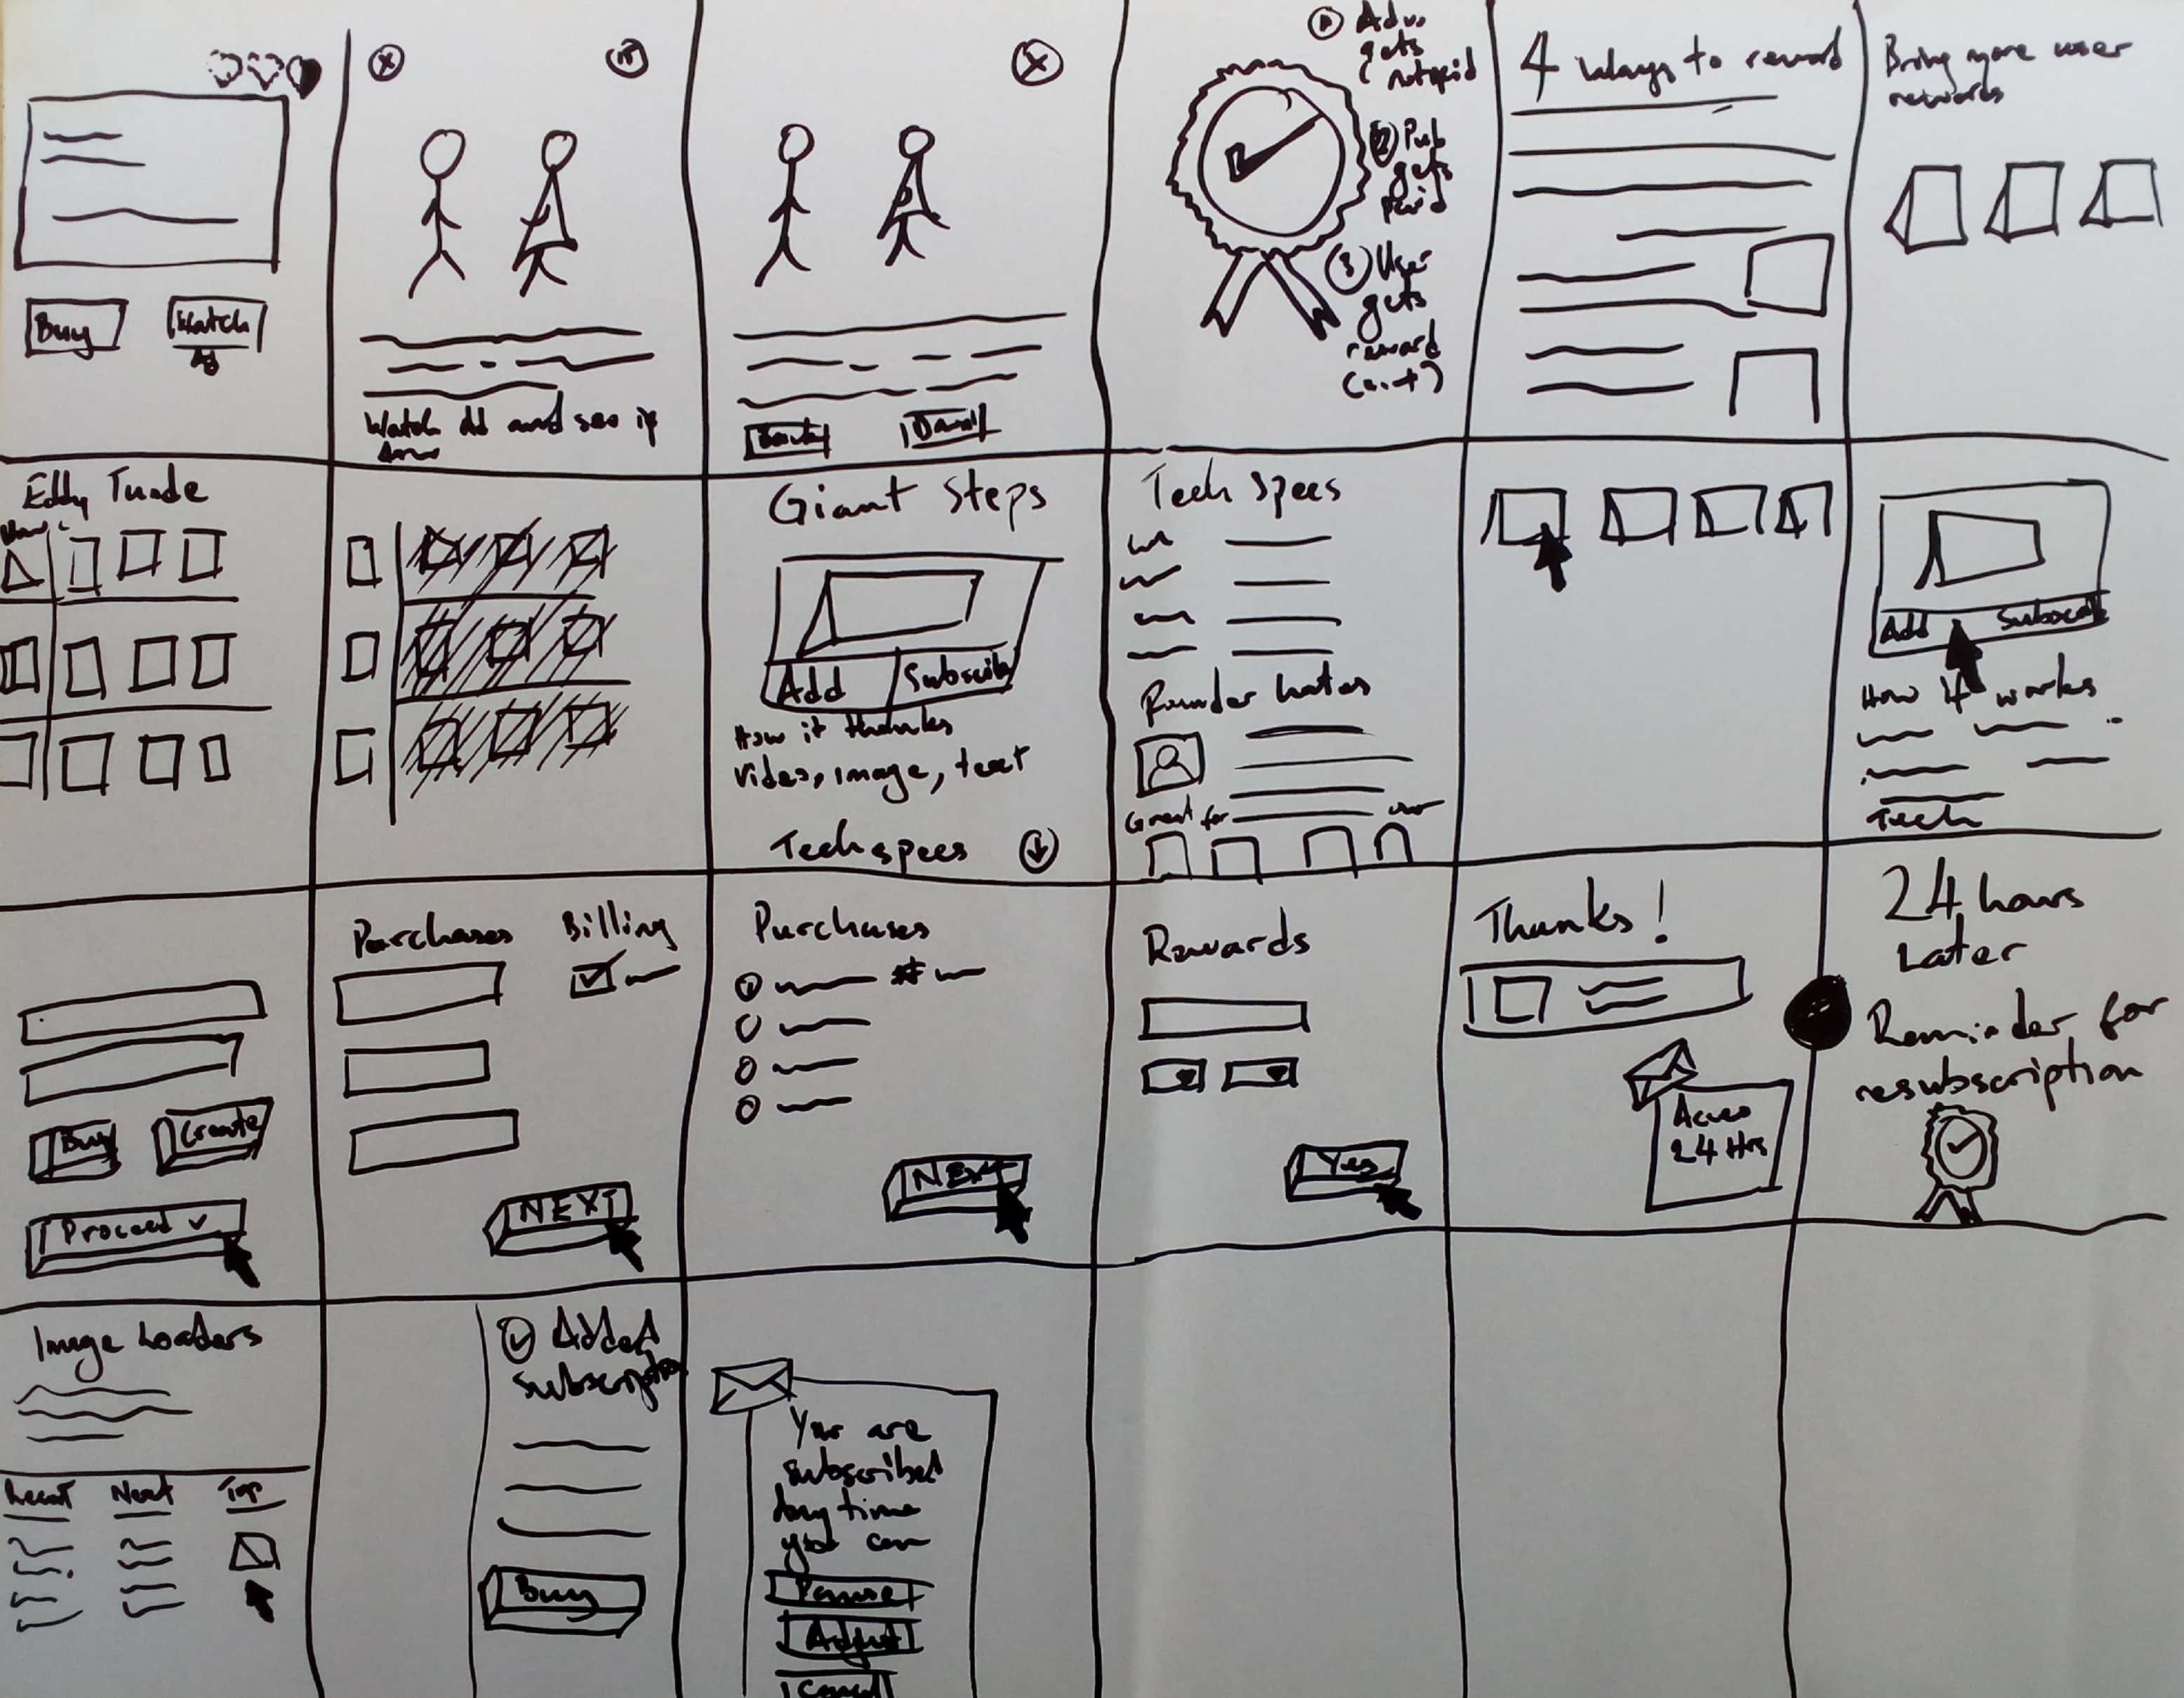 Buy
Watch
Ad
Watch Ad and see if
Adv.
gets
notpaid
2 Pub
gets
paid
3 User
gets
reward
4 Ways to reward
Bring more user
rewards
Eddy Trade
Giant Steps
Add
Subscrib
How it thanks
video, image, text
Tech specs
Tech Specs
Founder hates
Great for
Add
Subscrib
How it works
Tech
Buy
Create
Proceed
Purchases
Billing
NEXT
Purchases
#
NEXT
Rewards
Yes
Thanks!
24 Hrs
24 hours
Later
Reminder for
resubscription
Image Loaders
Recent
Next
Top
Added
subscription
Buy
You are
subscribed
Any time
you can
Pause
Adjust
Cancel